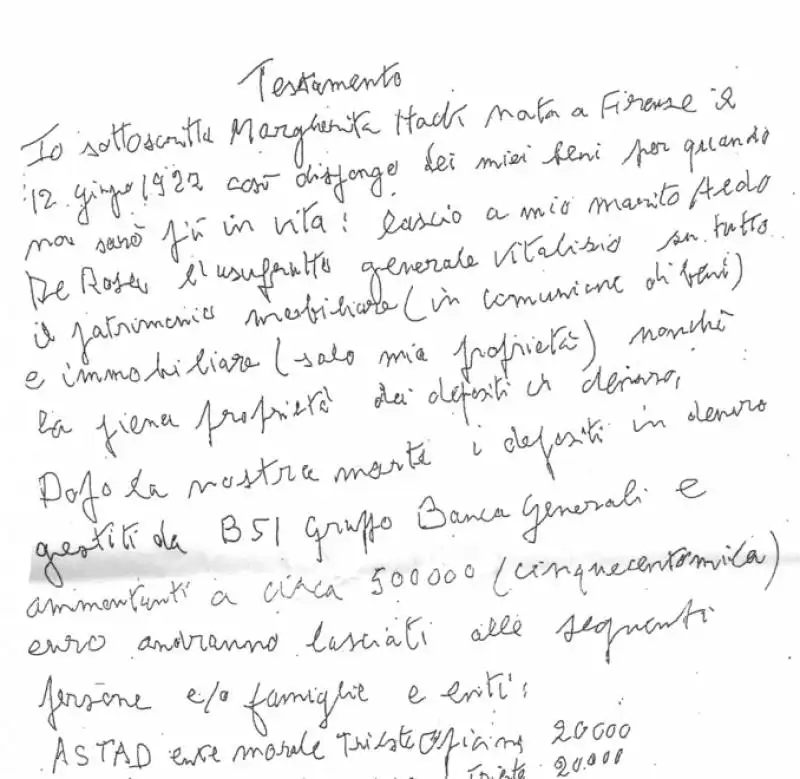 Testamento
Io sottoscritta Margherita Hack nata a Firenze il
12 giugno 1922 così dispongo dei miei beni per quando
non sarò più in vita: lascio a mio marito Aldo
De Rosa l'usufrutto generale vitalizio su tutto
il patrimonio mobiliare (in comunione di beni)
e immobiliare (solo mia proprietà) nonché
la piena proprietà dei depositi in denaro,
Dopo la nostra morte i depositi in denaro
gestiti da BSI Gruppo Banca Generali e
ammontanti a circa 500000 (cinquecentomila)
euro andranno lasciati alle seguenti
persone e/o famiglie e enti:
ASTAD ente morale Trieste Opicina 20000
Trieste 20.000